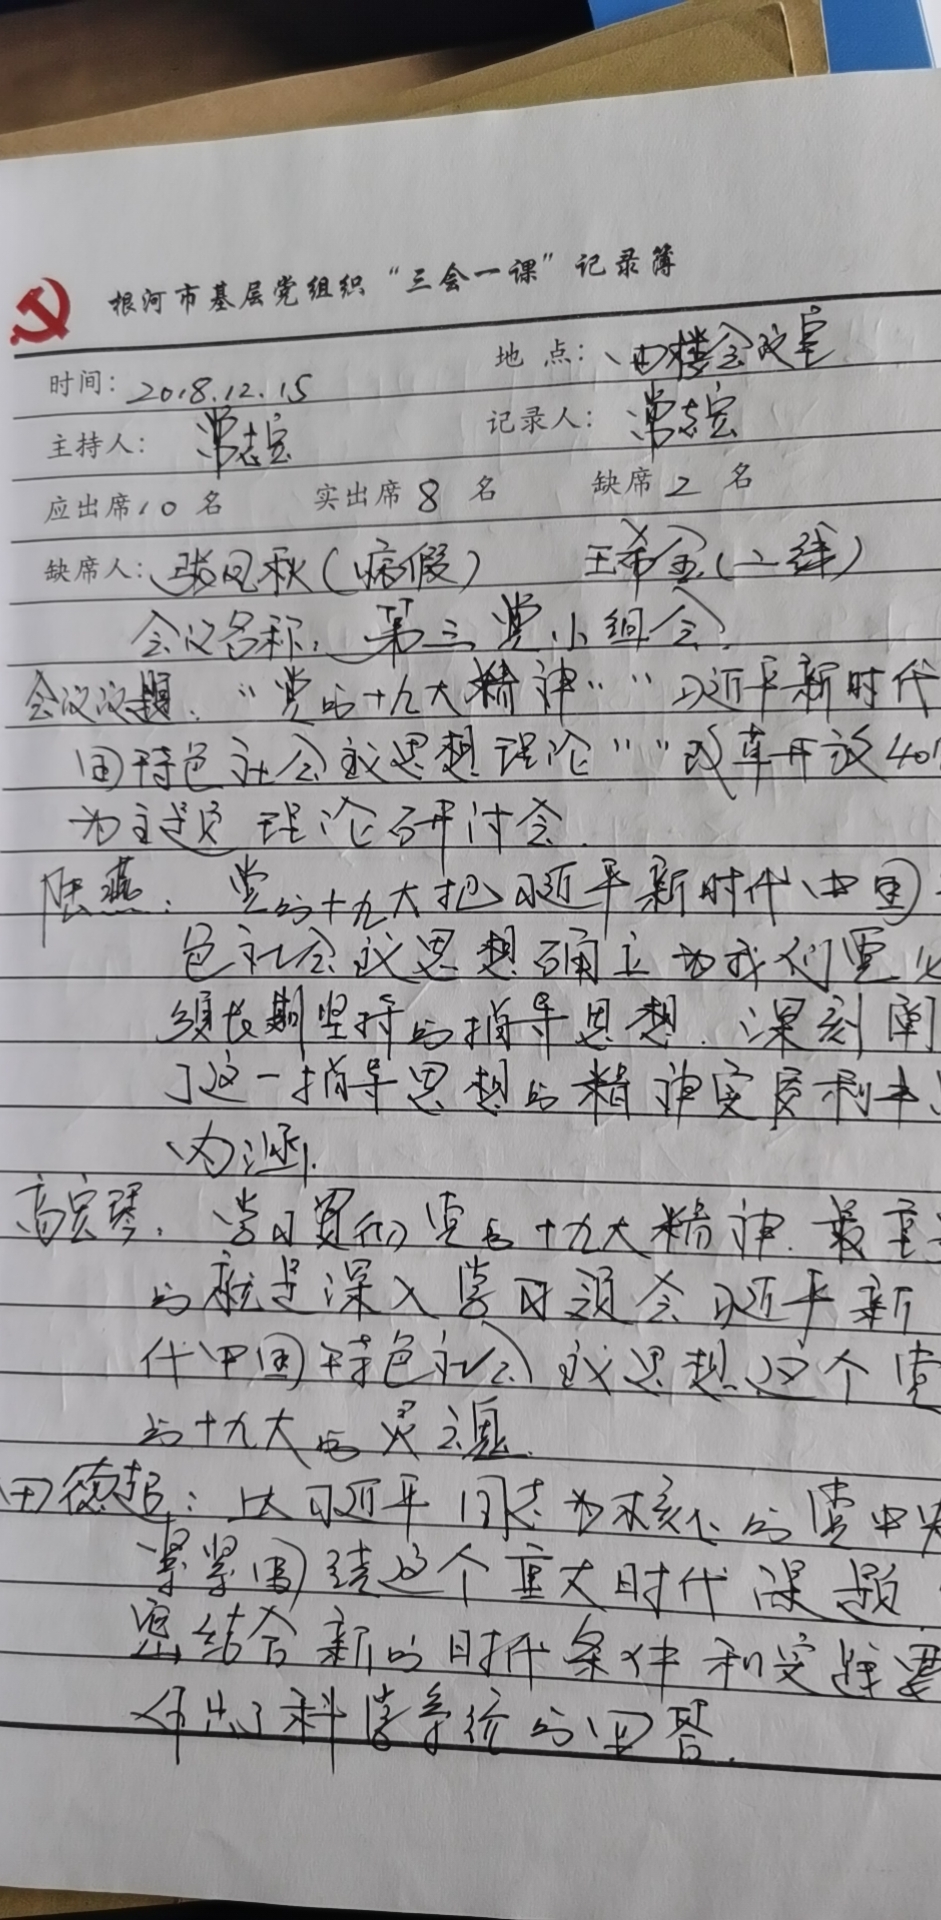 根河市基层党组织“三会一课”记录簿
时间：2018.12.15 地点：四楼会议室
主持人：常志宝 记录人：常志宝
应出席10名 实出席8名 缺席2名
缺席人：张凤秋（病假） 王希金（二线）
会议名称：第三党小组会
会议议题：“党的十九大精神”“习近平新时代
国特色社会主义思想理论”“改革开放40
为主题理论研讨会.
陈燕：党的十九大把习近平新时代中国
色社会主义思想确立为我们党必
须长期坚持的指导思想.深刻阐
了这一指导思想的精神实质和丰
内涵.
高宝琴：学习贯彻党的十九大精神.最重
的就是深入学习领会习近平新
代中国特色社会主义思想这个党
的十九大的灵魂.
田德起：以习近平同志为核心的党中央
紧紧围绕这个重大时代课题
密结合新的时代条件和实践要
作出了科学系统的回答.